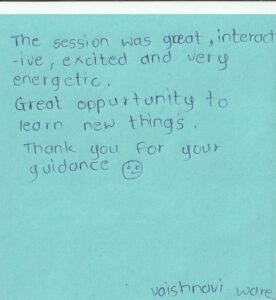 The session was great, interact
-ive, excited and very
energetic.
Great oppurtunity to
learn new things.
Thank you for your
guidance
vaishnavi ware